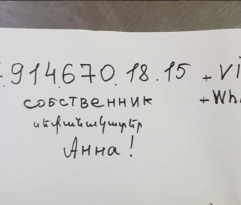 914670.18.15 + Vi
собственник + Wh
սեփականատեր
Анна!